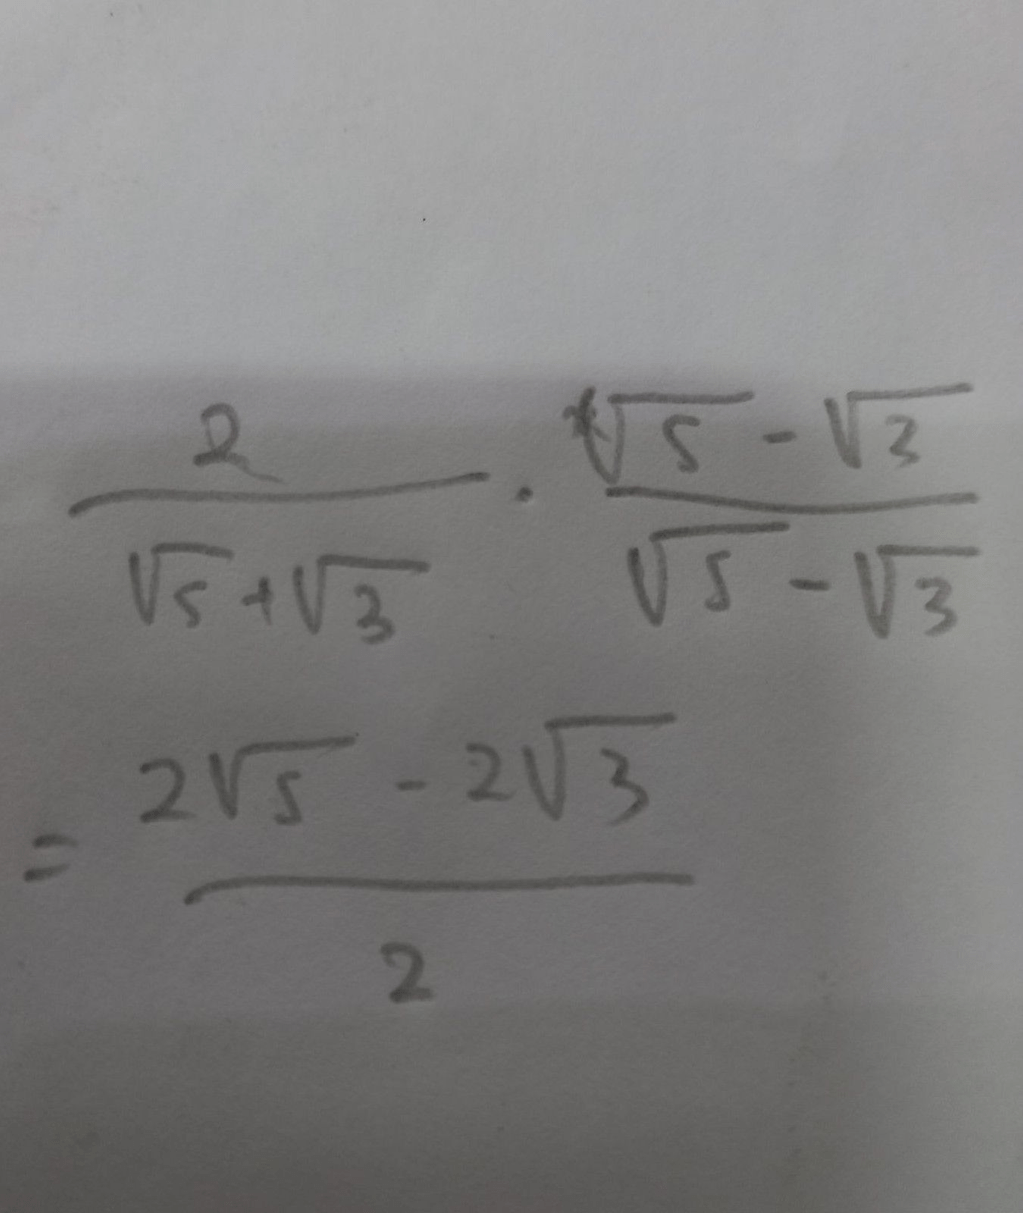 2/(√5+√3) · (√5-√3)/(√5-√3)
= (2√5 - 2√3)/2